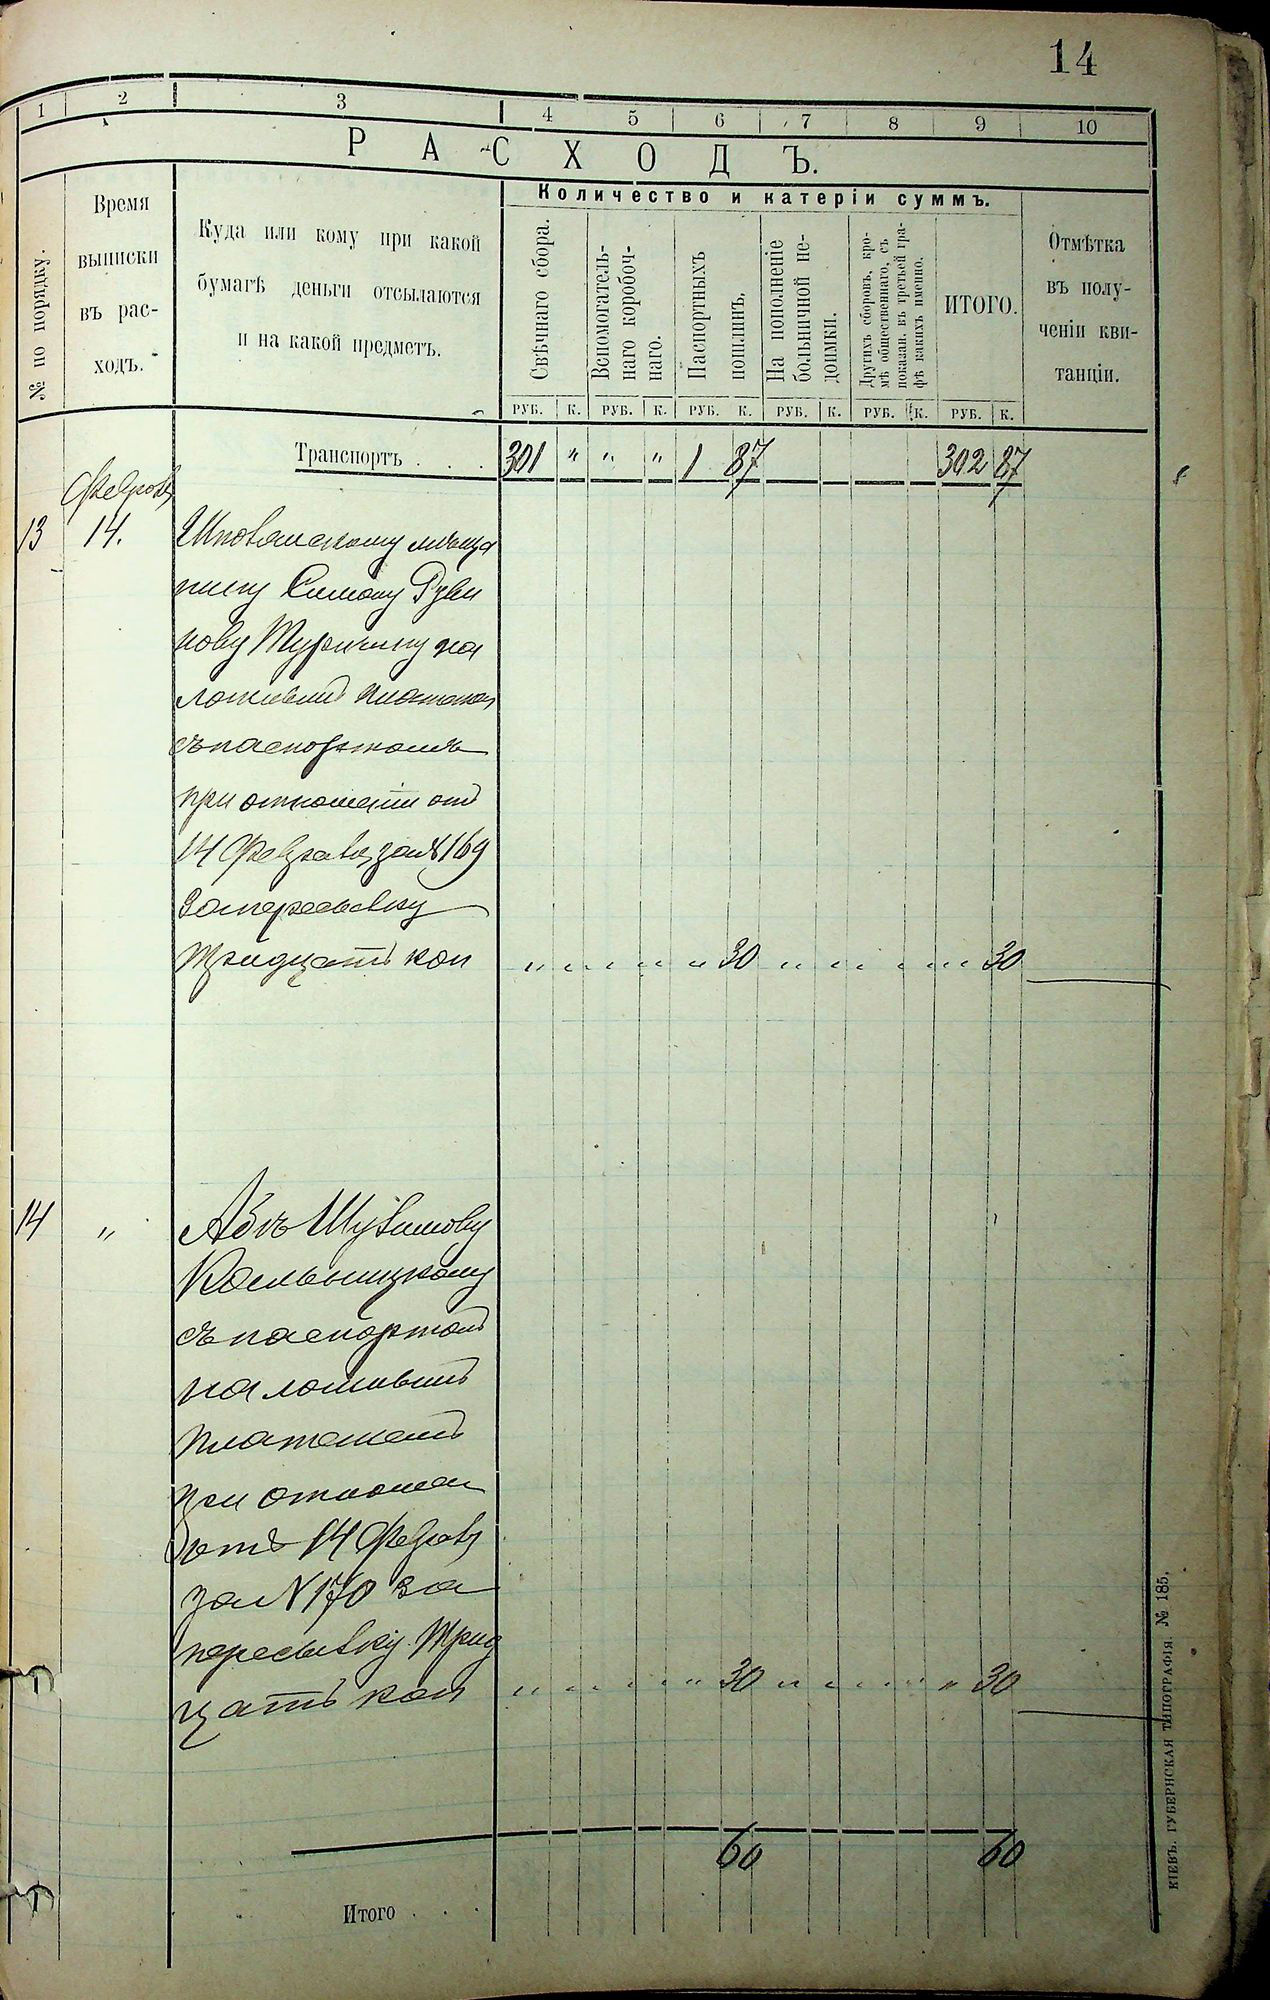 14
1 2 3 4 5 6 7 8 9 10
РАСХОДЪ.
№ по порядку.
Время
выписки
въ рас-
ходъ.
Куда или кому при какой
бумагѣ деньги отсылаются
и на какой предметъ.
Количество и катерiи суммъ.
Свѣчнаго сбора.
Вспомогатель-
наго коробоч-
наго.
Паспортныхъ
пошлинъ.
На пополненіе
больничной не-
доимки.
Другихъ сборовъ, кро-
мѣ общественнаго, съ
показан. въ третьей гра-
фѣ какихъ именно.
ИТОГО.
Отмѣтка
въ полу-
ченіи кви-
танціи.
РУБ. К. РУБ. К. РУБ. К. РУБ. К. РУБ. К. РУБ. К.
Транспортъ . . . 301 " " " 1 87 302 87
13 14.
мѣща
нину Симону Руви
нову на
ложенным платежом
съ паспортомъ
при отношеніи отъ
14 Февраля за № 169
За пересылку
тридцать коп " " " " " 30 " " " " " 30
14 "
съ паспортом
наложеным
платежом
при отношен
отъ 14 Февраля
за № 170 за
пересылку Трид
цать коп " " " " " 30 " " " " " 30
60 60
Итого . . .
КІЕВЪ. ГУБЕРНСКАЯ ТИПОГРАФІЯ. № 185.